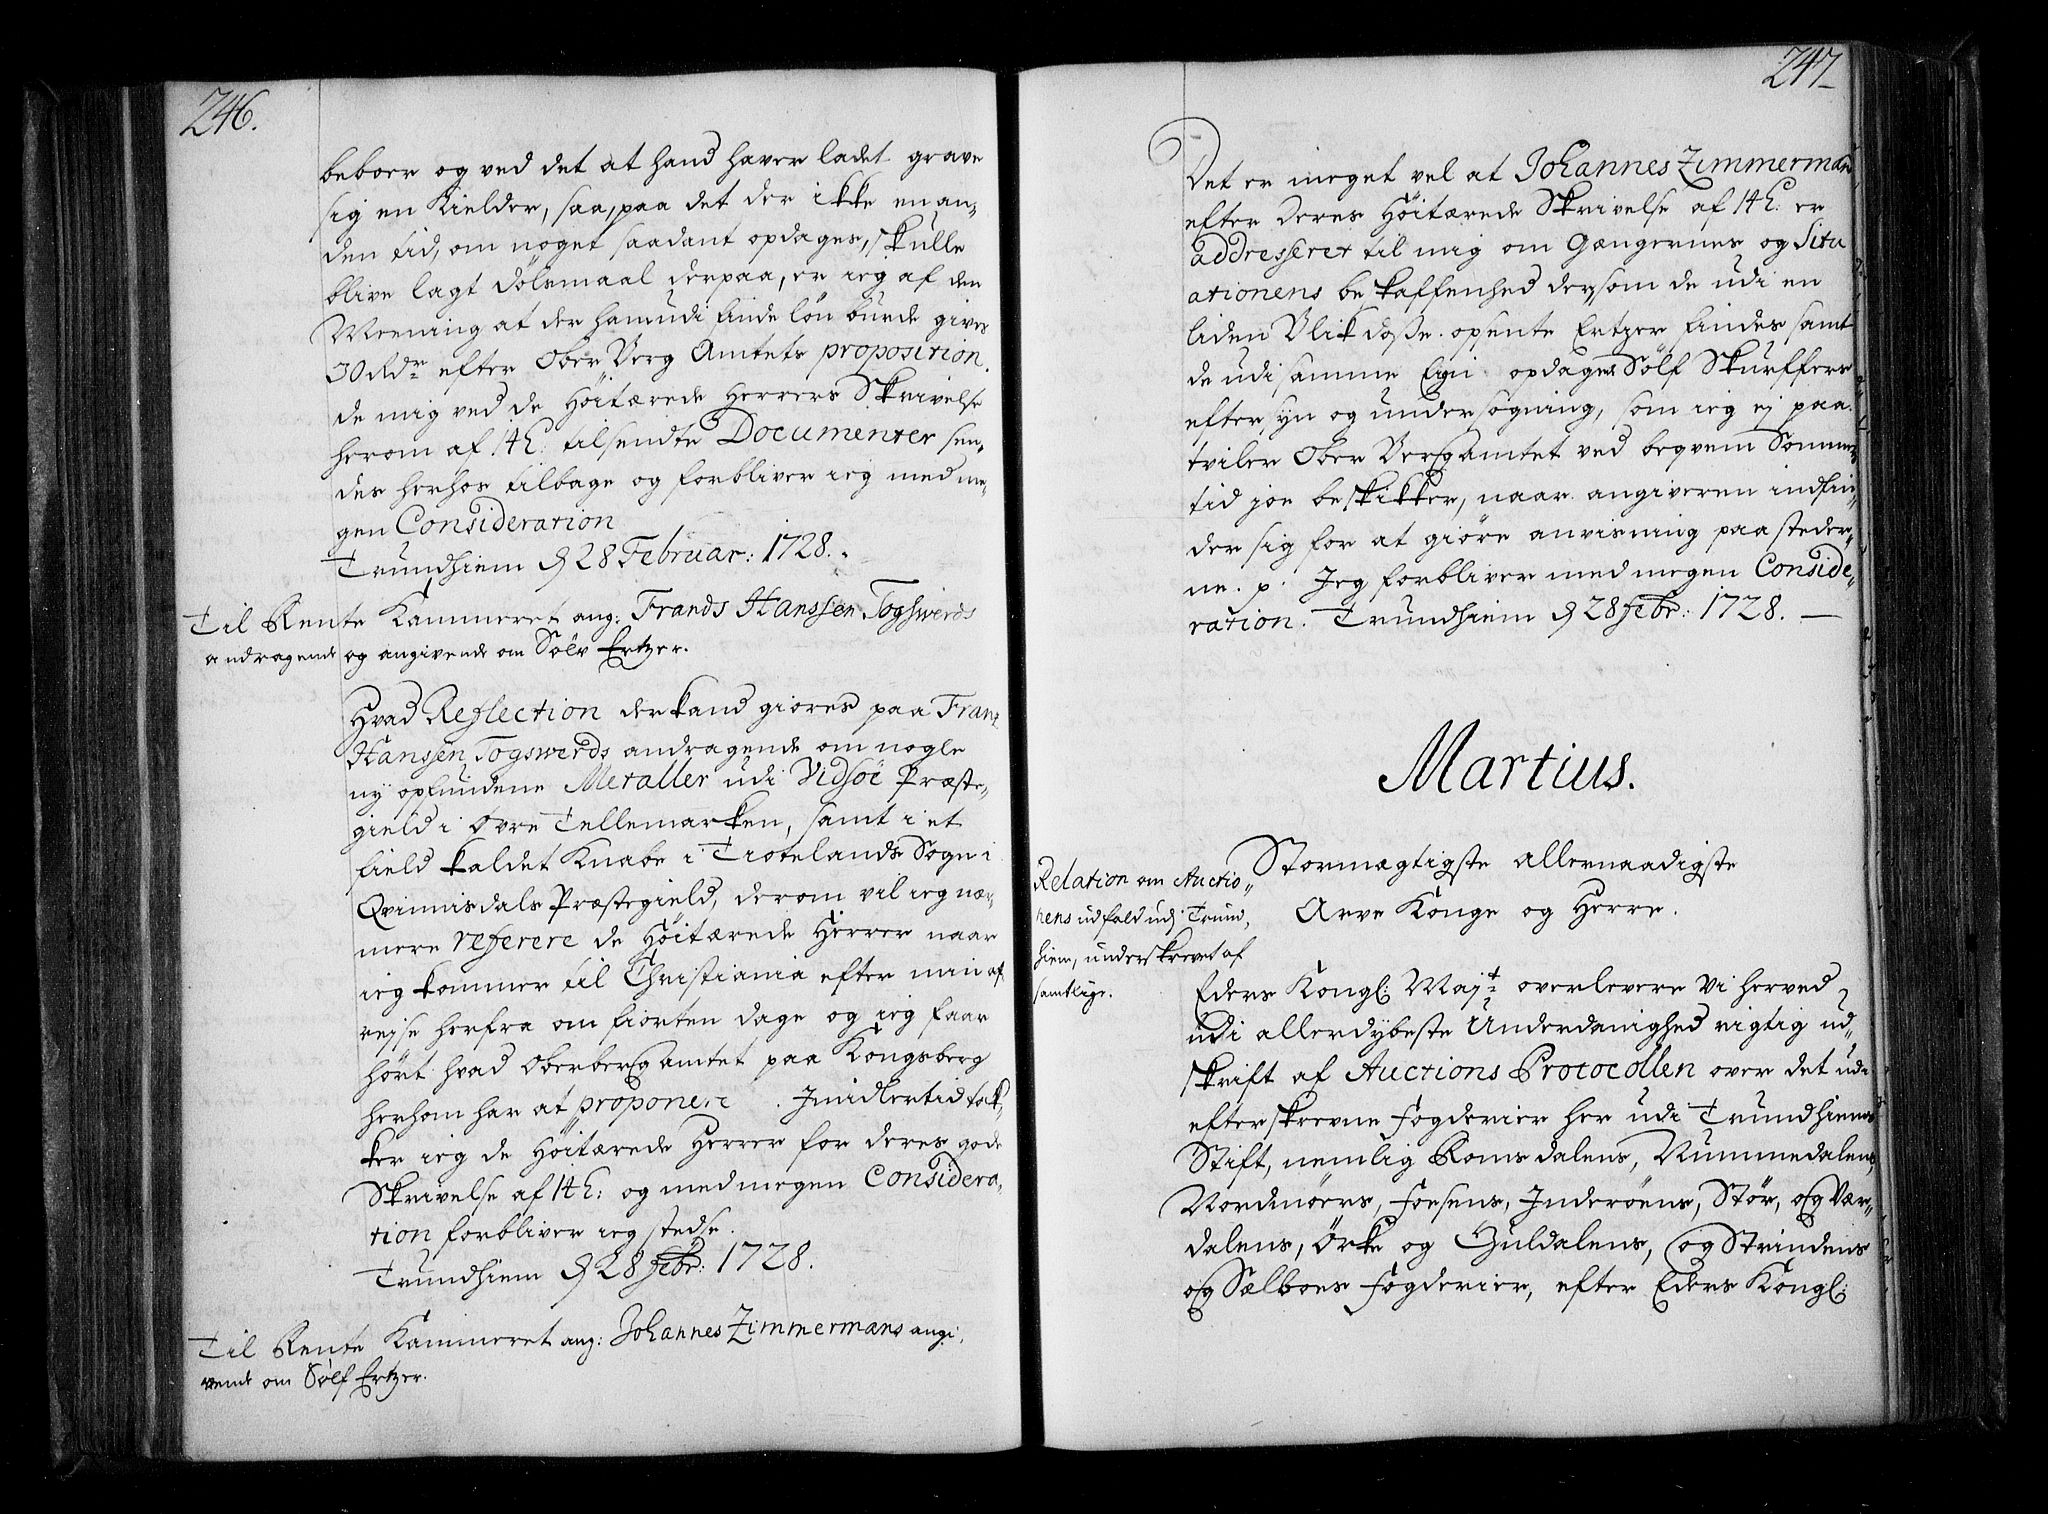 246.
beboer og ved det at hand haver ladet grave
sig en Kielder, saa, paa det der ikke en an-
den tid, om noget saadant opdages, skulle
blive lagt dølsmaal derpaa, er ieg af den
Meening at der hannudi finde løn burde gives
30 Rdr efter Ober Berg Amtets proposition.
de mig ved de Høitærede Herrers Skrivelse
herom af 14 h: tilsendte Documenter sen-
des herhos tilbage og forbliver ieg med me-
gen Consideration
Trundhiem d 28 Februar: 1728.
Til Rente Kammeret ang: Frands Hanssen Togswerds
andragende og angivende om Sølv Ertzer.
Hvad Reflection der kand giøres paa Franz
Hanssen Togswerds andragende om nogle
ny opfundene Metaller udi Vidsøe Præste-
gield i Øvre Tellemarken, samt i et
field kaldet Knabe i Tiotelands Sogn i
Qvinnisdals Præstegield, derom vil ieg nær-
mere referere de Høitærede Herrer naar
ieg kommer til Christiania efter min af-
rejse herfra om fiorten dage og ieg faar
hørt hvad Oberbergamtet paa Kongsberg
herhom har at proponere. Imidlertid tak-
ker ieg de Høitærede Herrer for deres gode
Skrivelse af 14 h: og med megen Considera-
tion forbliver ieg stedse.
Trundhiem d 28 febr: 1728.
Til Rente Kammeret ang: Johannes Zimmermans angi-
vende om Sølf Ertzer.
247
Det er meget vel at Johannes Zimmerman
efter Deres Høitærede Skrivelse af 14 h: er
addresseret til mig om Gængernes og Situ
ationens beskaffenhed dersom de udi en
liden Blik dosse opsente Ertzer findes samt
de udi samme Egn opdaget Sølf Skurffere
efter syn og undersøgning, som ieg ej paa
tviler Ober Bergamtet ved beqvem Sommer
tid joe beskikker, naar angiveren indfin-
der sig for at giøre anvisning paa steder-
ne. p. Jeg forbliver med megen Conside-
ration. Trundhiem d 28 febr: 1728.
Martius.
Relation om Auctio-
nens udfald udi Trund-
hiem, underskrevet af
samtlige.
Stormægtigste allernaadigste
Arve Konge og Herre.
Eders Kongl: Majt overlevere Vi herved
udi allerdybeste Underdanighed rigtig ud-
skrift af Auctions Protocollen over det udi
efterskrevne fogderier her udi Trundhiems
Stift, nemlig Romsdalens, Nummedalens,
Nordmøers, foesens, Inderøens, Stør, og Vær-
dalens, Örke og Guldalens, og Strindens
og Sælboes fogderier, efter Eders Kongl: